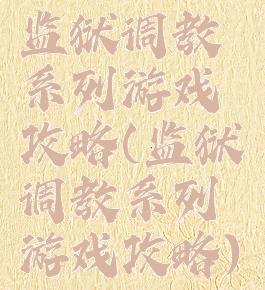 监狱调教
系列游戏
攻略(监狱
调教系列
游戏攻略)